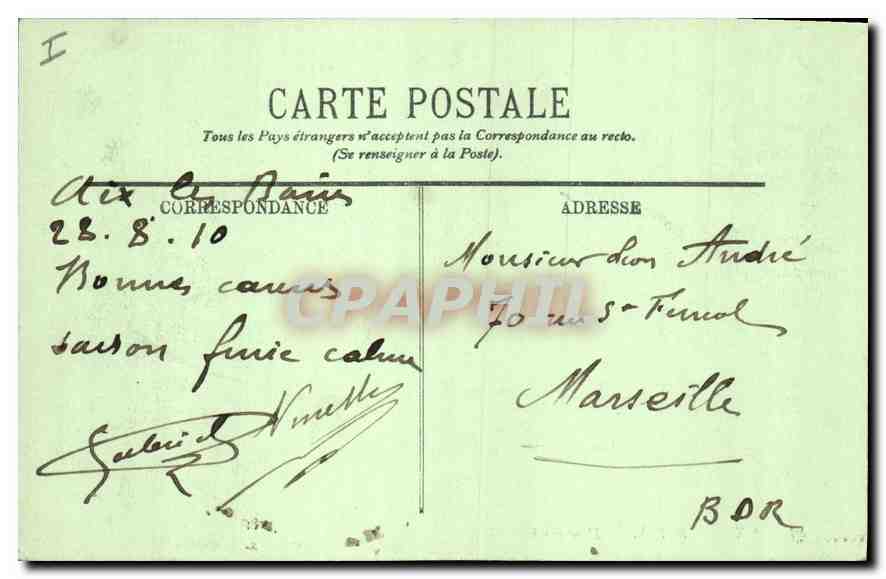 I
CARTE POSTALE
Tous les Pays étrangers n'acceptent pas la Correspondance au recto.
(Se renseigner à la Poste).
CORRESPONDANCE
ADRESSE
Aix les Bains
28.8.10
Bonnes
saison finie calme
Gabriel
Monsieur Léon André
70 rue St Ferréol
Marseille
BDR
CPAPHIL